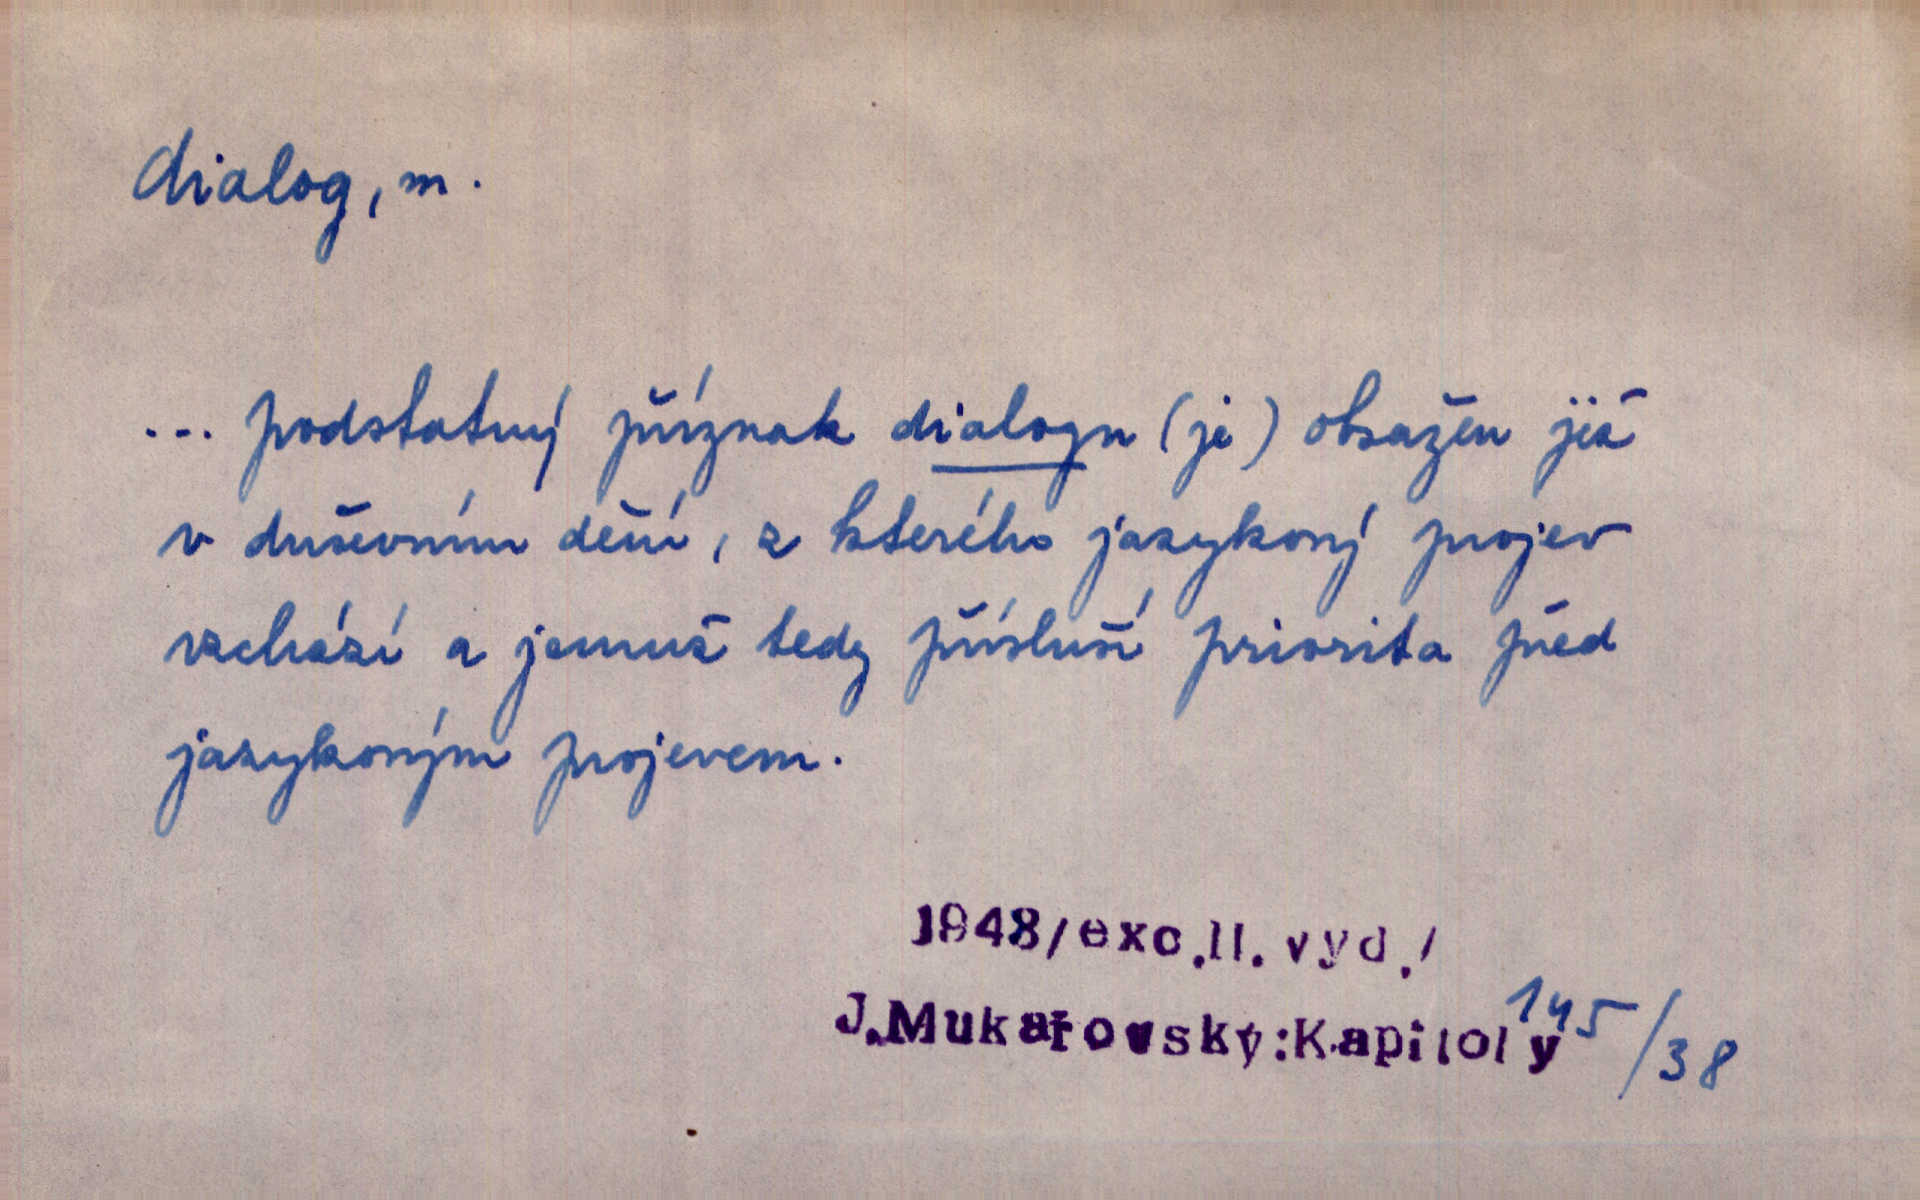 dialog, m.
... podstatný příznak dialogu (je) obsažen již
v duševním dění, z kterého jazykový projev
vzchází a jemuž tedy přísluší priorita před
jazykovým projevem.
1948/exc.II.vyd./
J.Mukařovský:Kapitoly 145/38